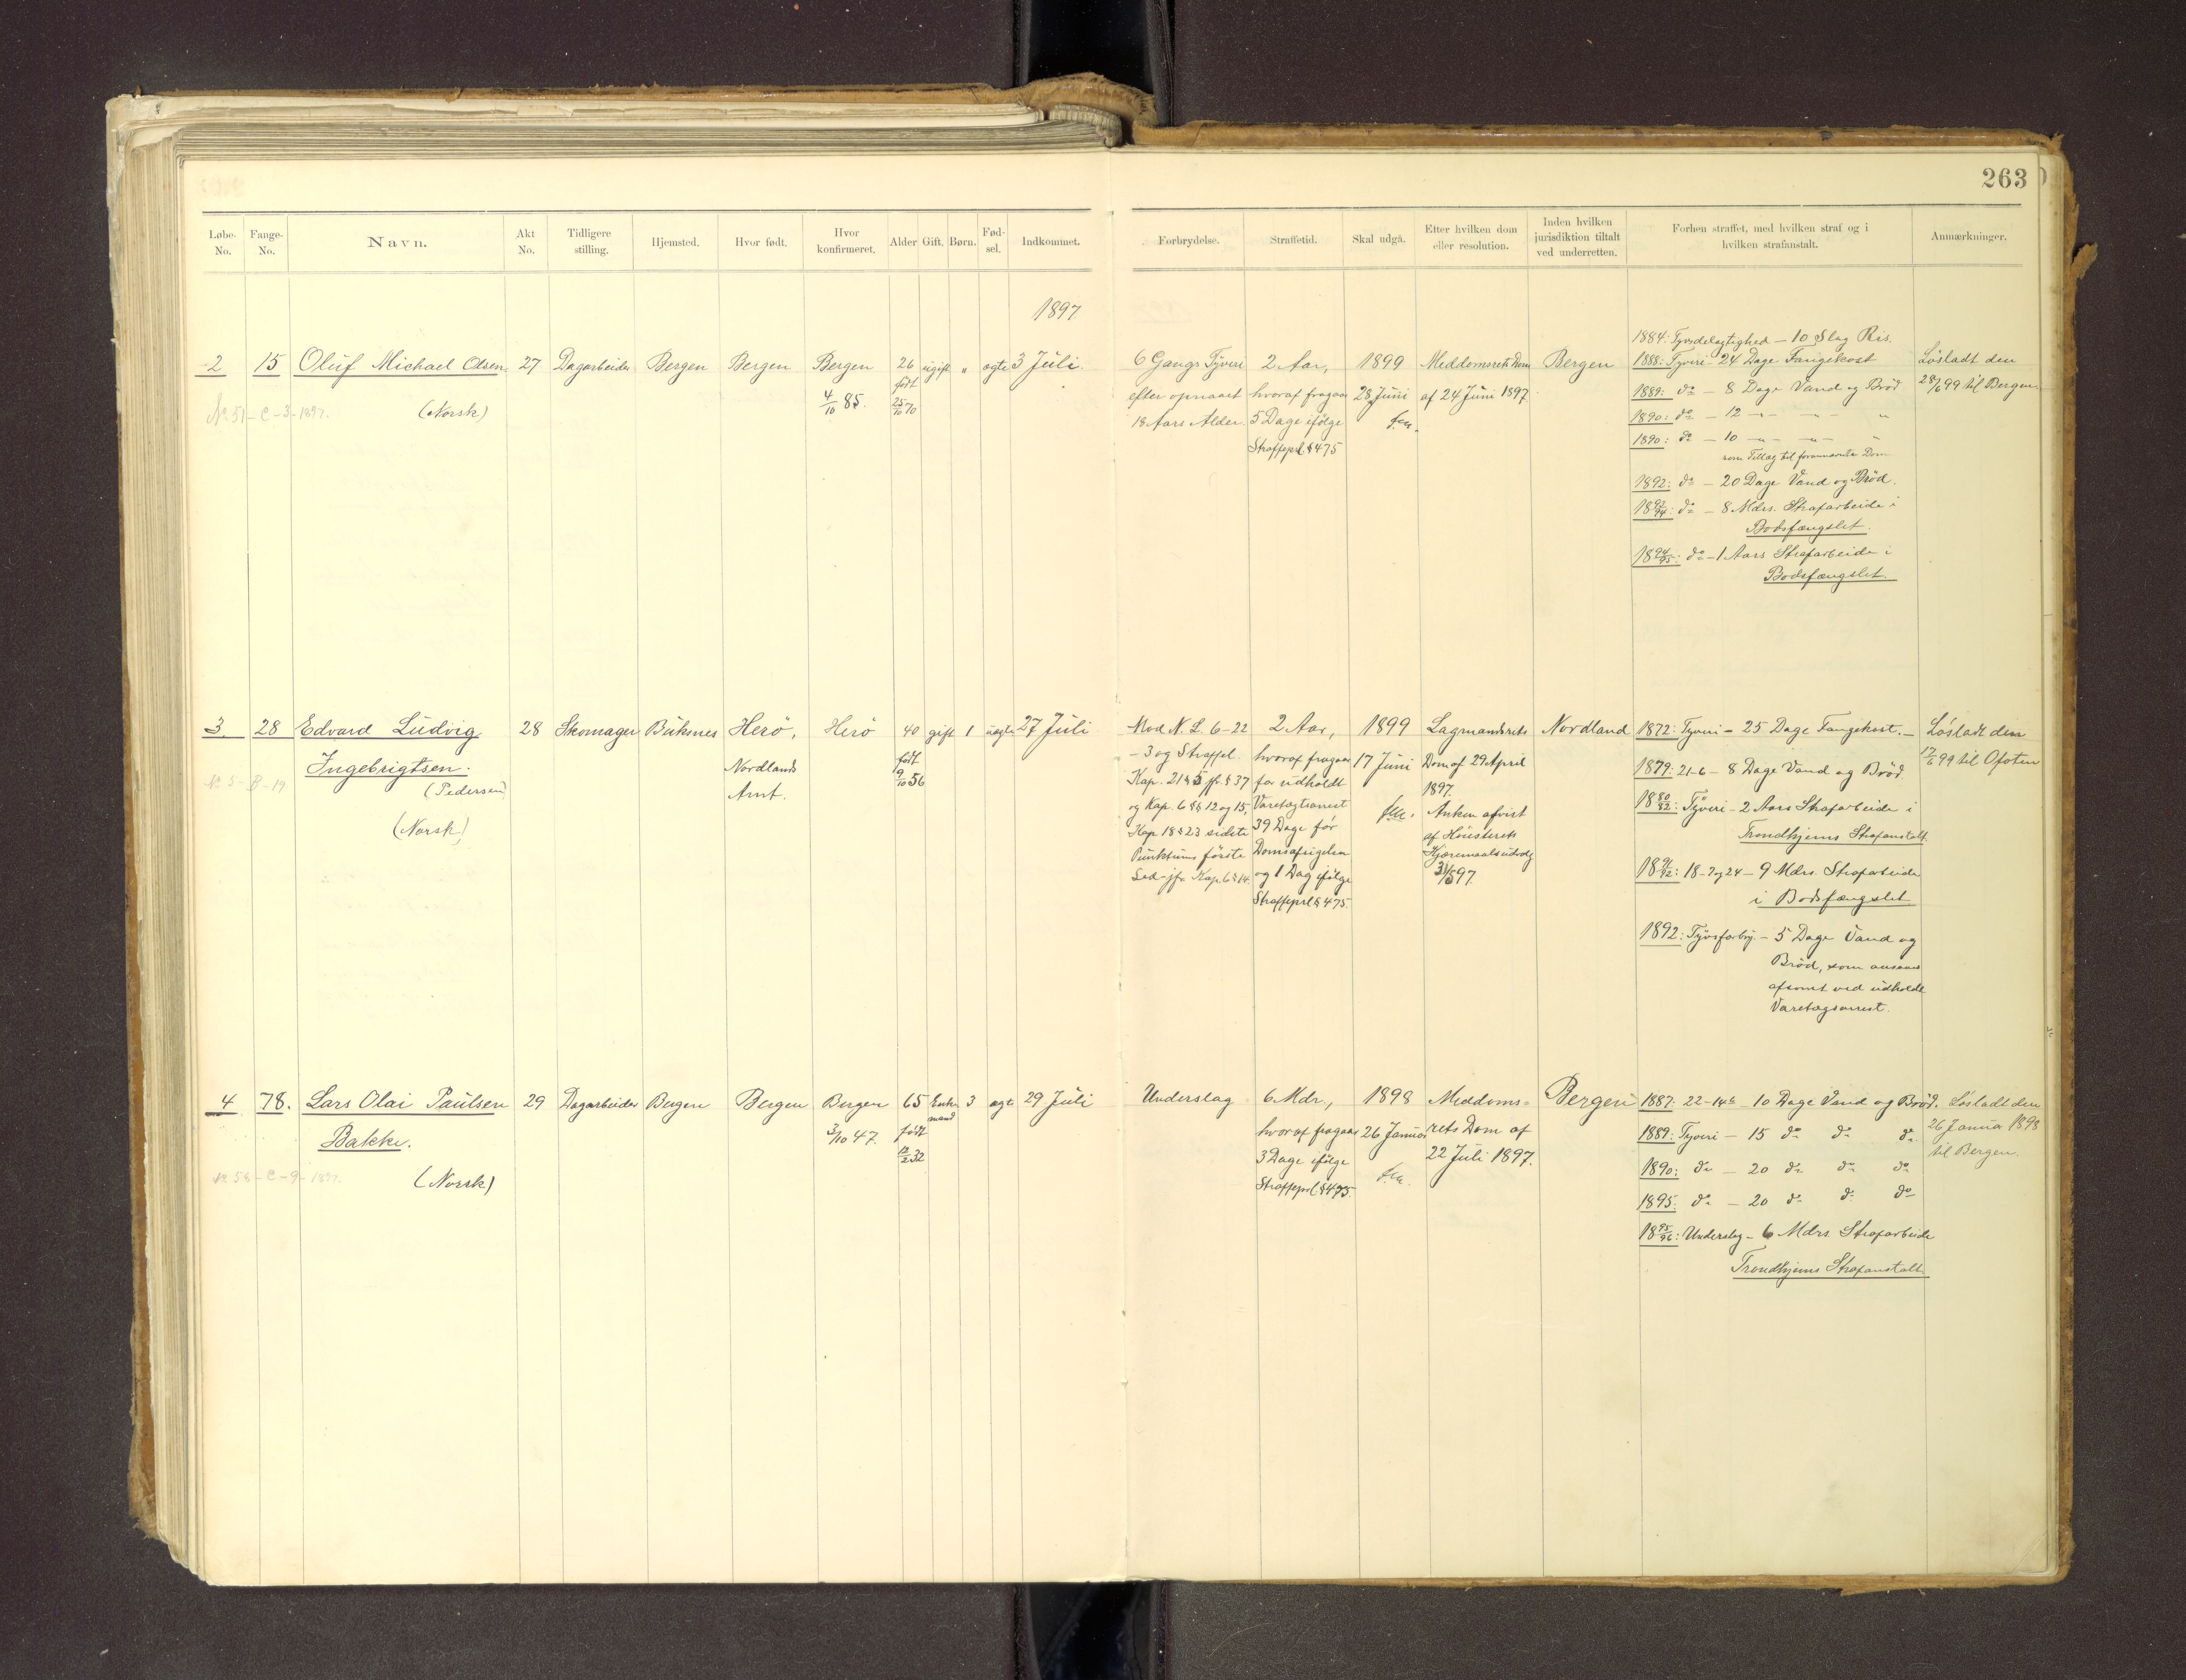 263
Løbe-No.
Fange-No.
Navn.
Akt No.
Tidligere stilling.
Hjemsted.
Hvor født.
Hvor konfirmeret.
Alder
Gift.
Børn.
Fød-sel.
Indkommet.
Forbrydelse.
Straffetid.
Skal udgå.
Efter hvilken dom eller resolution.
Inden hvilken jurisdiktion tiltalt ved underretten.
Forhen straffet, med hvilken straf og i hvilken strafanstalt.
Anmærkninger.
1897
2
15
Oluf Michael Olsen
(Norsk)
No 51 - C - 3 - 1897.
27
Dagarbeider
Bergen
Bergen
Bergen
4/10 85.
26
født
25/10 70
ugift
"
ægte
3 Juli.
6 Gangs Tyveri
efter opnaaet
18 Aars Alder.
2 Aar,
hvoraf fragaar
5 Dage ifølge
Straffeprl. § 475
1899
28 Juni
Meddomsrets Dom
af 24 Juni 1897.
Bergen
1884: Tyvsdelagtighed - 10 Slag Ris.
1888: Tyveri 24 Dage Fangekost
1889: do - 8 Dage Vand og Brød
1890: do - 12 -"- -"- "
1890: do - 10 -"- -"- "
som Tillæg til fornævnte Dom
1892: do - 20 Dage Vand og Brød.
1893/94: do - 8 Mdrs. Strafarbeide i
Bodsfængslet.
1894/95: do - 1 Aars Strafarbeide i
Bodsfængslet.
Løsladt den
28/6 99 til Bergen.
3
28
Edvard Ludvig
Ingebrigtsen.
(Pedersen)
(Norsk)
No 5 - B - 19
28
Skomager
Buksnes
Herö,
Nordlands
Amt.
Herö
40
født
9/10 56
gift
1
uægte
27 Juli
Mod N. L. 6-22
- 3 og Straffel.
Kap. 21 § 5 jfr. § 37
og Kap. 6 §§ 12 og 15,
Kap 18 § 23 sidste
Punktums første
Led - jfr. Kap. 6 § 14.
2 Aar,
hvoraf fragaar
for udholdt
Varetægtsarrest
39 Dage før
Domsafsigelsen
og 1 Dag ifølge
Straffeprl § 475.
1899
17 Juni
Lagmandsrets
Dom af 29 April
1897.
Anken afvist
af Høiesterets
Kjæremaalsudvalg
31/5 97.
Nordland
1872: Tyveri - 25 Dage Fangekost. -
1879: 21-6 - 8 Dage Vand og Brød
1880/82: Tyveri - 2 Aars Strafarbeide i
Trondhjems Strafanstalt.
1891/92: 18-7 og 24 - 9 Mdrs. Strafarbeide
i Bodsfængslet
1892: Tyvsforbry. - 5 Dage Vand og
Brød, som ansaaes
afsont ved udholdt
Varetægsarrest.
Løsladt den
17/6 99 til Ofoten
4
78.
Lars Olai Paulsen
Bakke.
(Norsk)
No 56 - C - 9 - 1897.
29
Dagarbeider
Bergen
Bergen
Bergen
3/10 47.
65
født
12/2 32
Enke-
mand
3
ægte
29 Juli
Underslag
6 Mdr,
hvoraf fragaar
3 Dage ifølge
Straffeprl § 475.
1898
26 Januar
Meddoms-
rets Dom af
22 Juli 1897.
Bergen
1887: 22-14b - 10 Dage Vand og Brød.
1889: Tyveri - 15 do do do
1890: do - 20 do do do
1895: do - 20 do do do
1895/96: Underslag - 6 Mdrs. Strafarbeide
Trondhjems Strafanstalt
Løsladt den
26 Janua 1898
til Bergen.